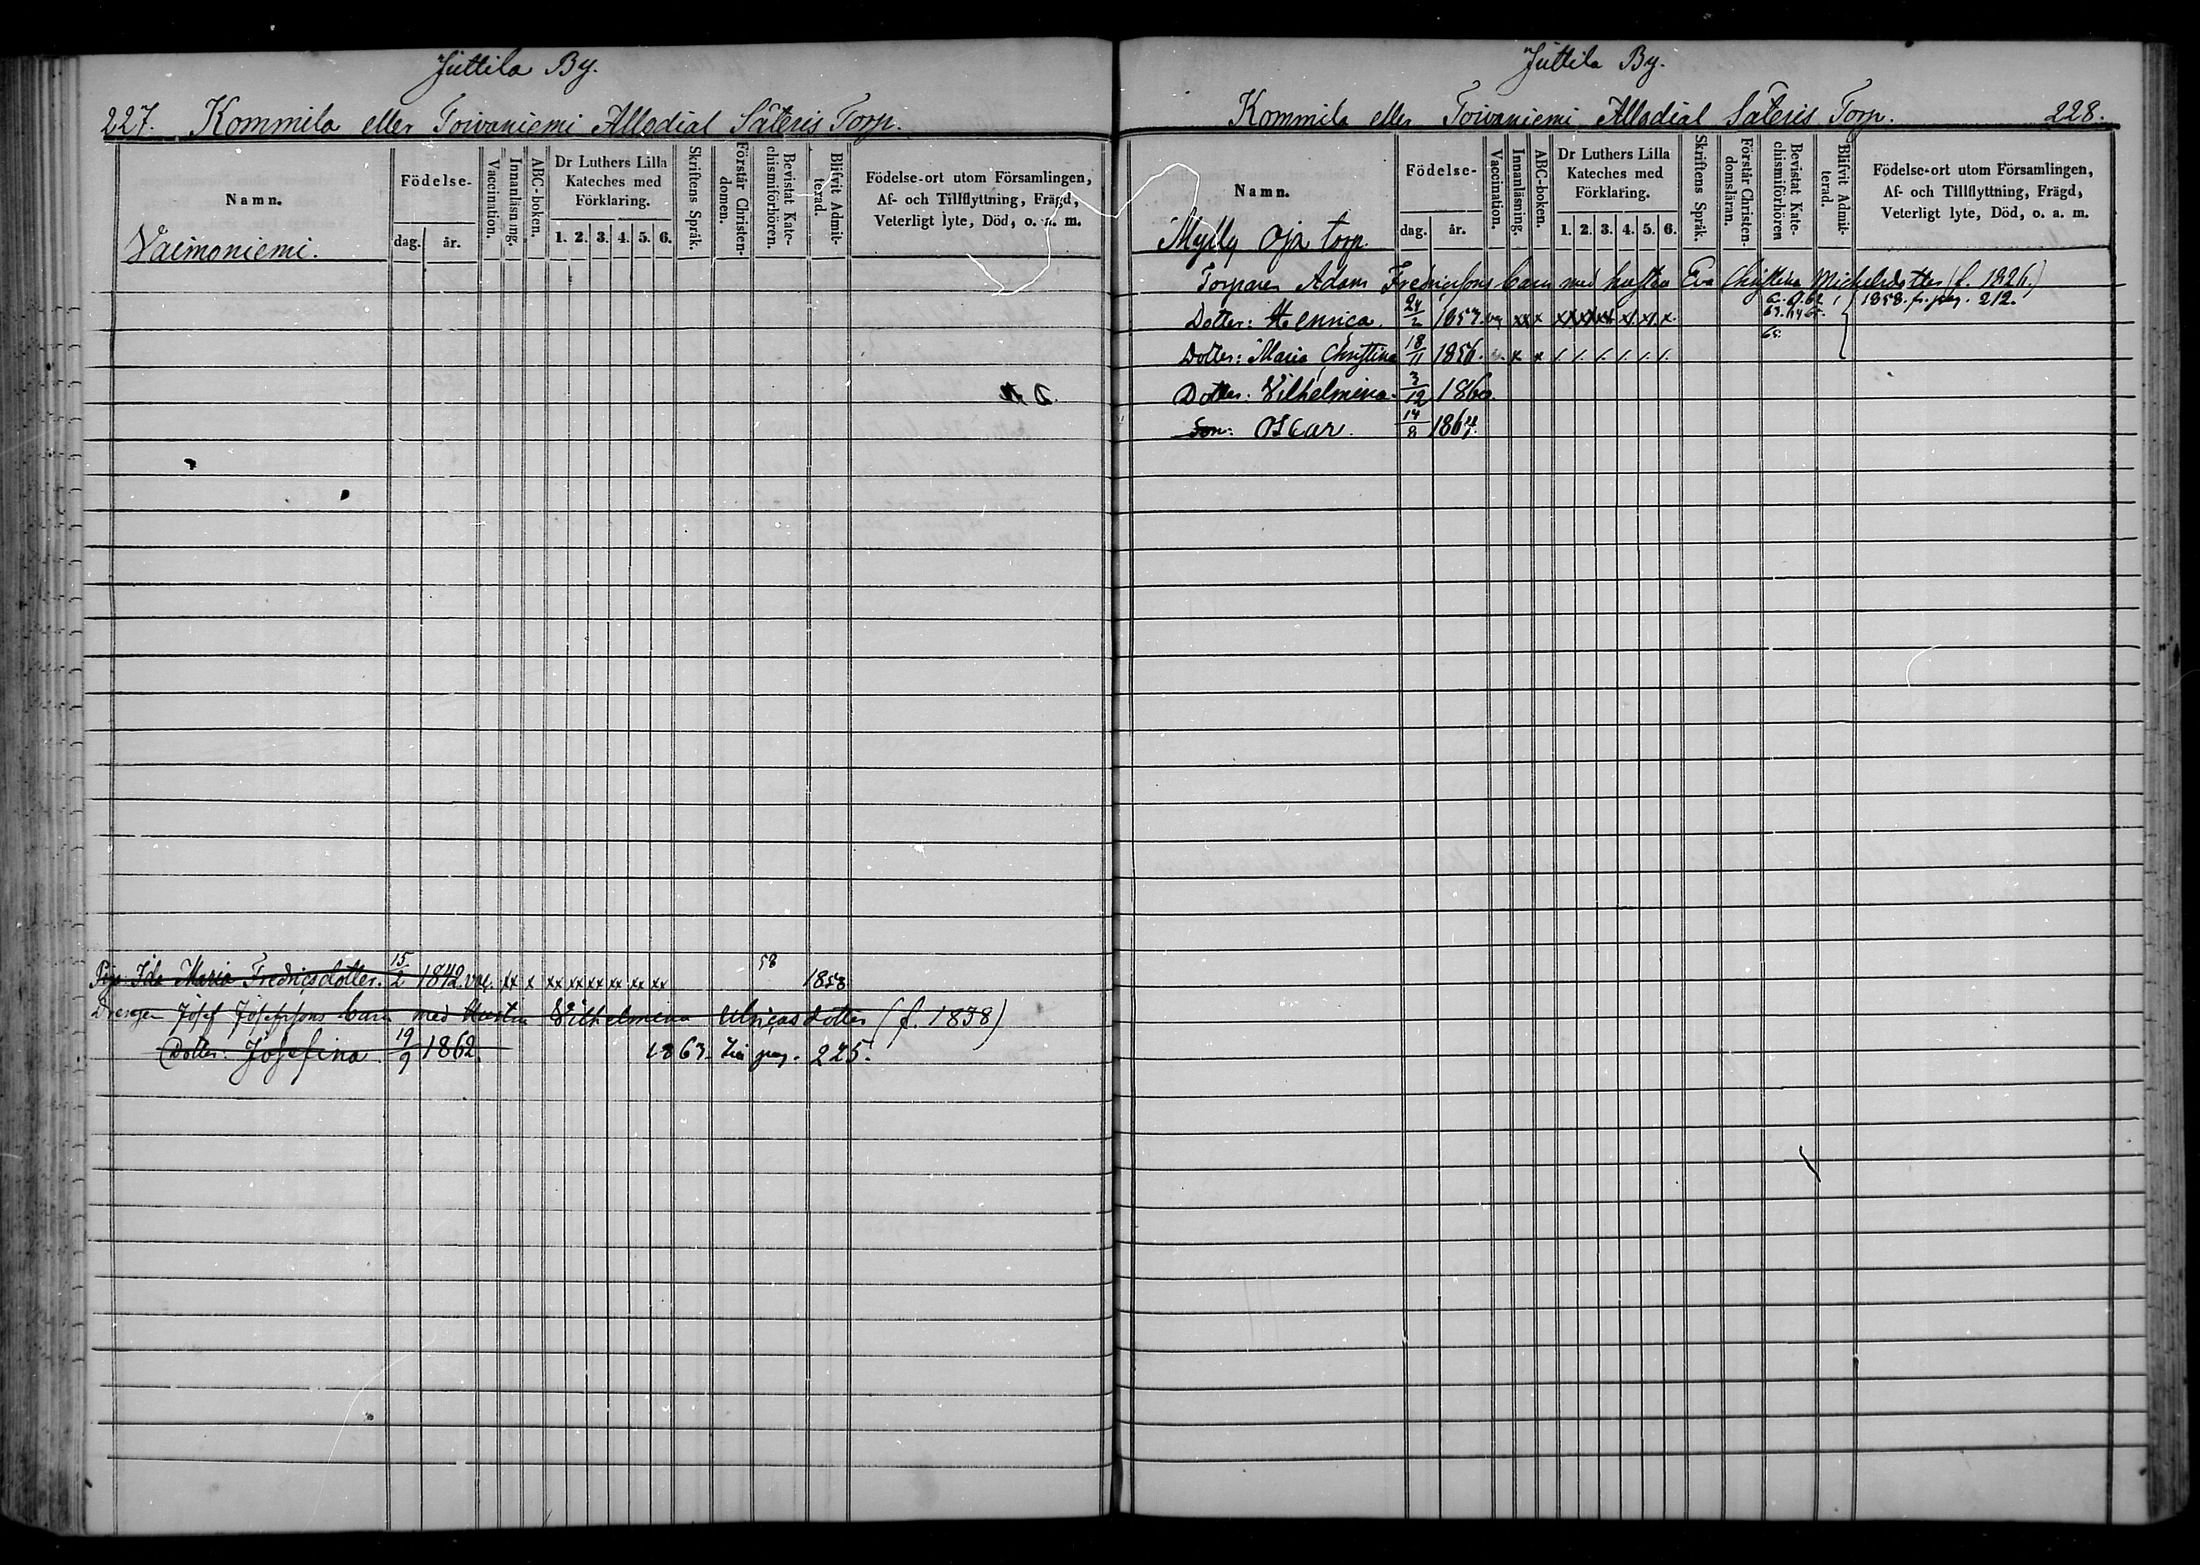 Juttila By.
227. Kommila eller Toivaniemi Allodial Säteris Torp.
Namn.
Födelse-
dag. år.
Vaccination.
Innanläsning.
ABC-boken.
Dr Luthers Lilla Kateches med Förklaring.
1. 2. 3. 4. 5. 6.
Skriftens Språk.
Förstår Christen-domen.
Bevistat Kate-chismiförhören.
Blifvit Admit-terad.
Födelse-ort utom Församlingen,
Af- och Tillflyttning, Frägd,
Veterligt lyte, Död, o. a. m.
Vaimoniemi.
Pig. Ida Maria Fredricsdotter. 15/2 1842. vac. xx x xx xx xx xx xx xx 58 1858
Drengen Josef Josefssons barn med Hustru Wilhelmina Ulricasdotter (f. 1838)
Dotter: Josefina 19/9 1862. 1863. pag. 225.
Juttila By.
Kommila eller Toivaniemi Allodial Säteris Torp. 228.
Namn.
Födelse-
dag. år.
Vaccination.
Innanläsning.
ABC-boken.
Dr Luthers Lilla Kateches med Förklaring.
1. 2. 3. 4. 5. 6.
Skriftens Språk.
Förstår Christen-domsläran.
Bevistat Kate-chismiförhören
Blifvit Admit-terad.
Födelse-ort utom Församlingen,
Af- och Tillflyttning, Frägd,
Veterligt lyte, Död, o. a. m.
Mylly Oja torp.
Torparen Adam Fredricssons barn med hustru Eva Christina Michelsdotter (f. 1826.)
Dotter: Henrica. 24/2 1853. xx x 1858. fr. pag. 212.
Dotter: Maria Christina 18/11 1856. x x 1. 1. 1. 1. 1. 1. 65.
Dotter: Vilhelmina. 3/12 1860.
Son: Oscar. 14/8 1864.